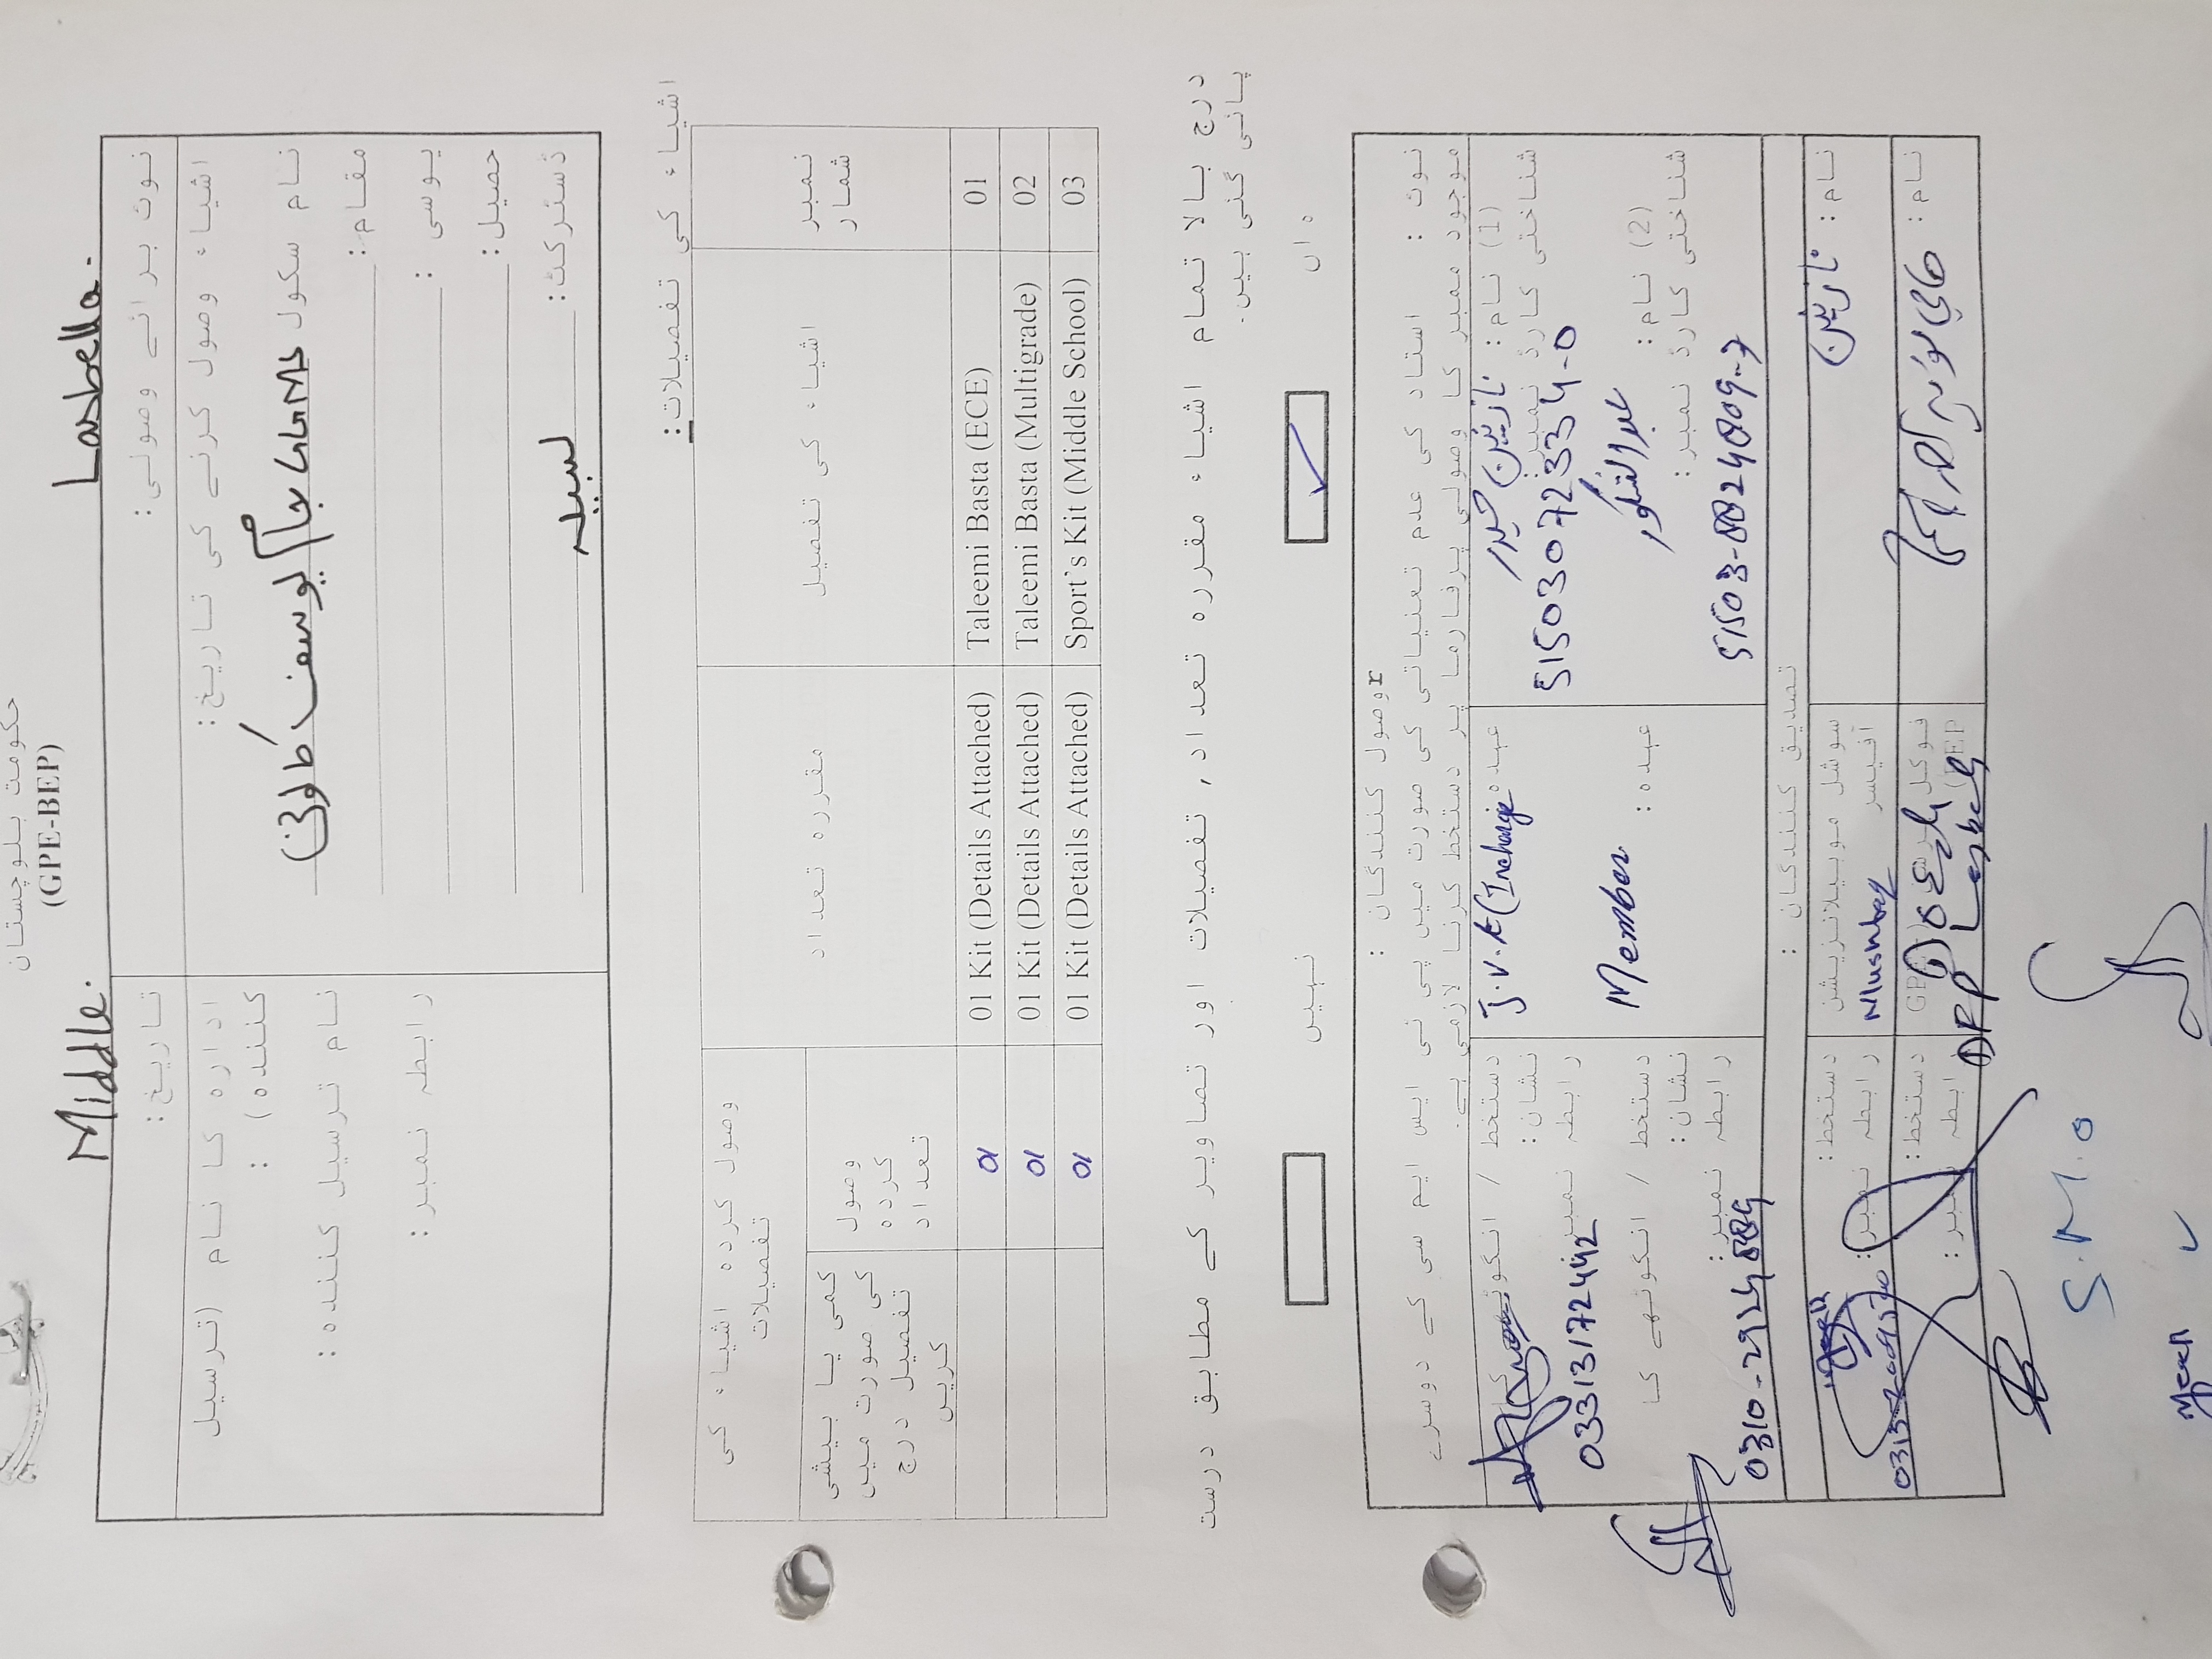 حکومت بلوچستان
(GPE-BEP)
Middle. Lasbella.
نوٹ برائے وصولی:
تاریخ:
اشیاء وصول کرنے کی تاریخ:
ادارہ کا نام (ترسیل کنندہ) :
نام سکول GGMS یوسف گوٹھ
نام ترسیل کنندہ:
مقام:
رابطہ نمبر:
یوسی :
حصیل:
ڈسٹرکٹ: لسبیلہ
اشیاء کی تفصیلات:
نمبر شمار
اشیاء کی تفصیل
مقررہ تعداد
وصول کردہ اشیاء کی تفصیلات
وصول کردہ تعداد
کمی یا بیشی کی صورت میں تفصیل درج کریں
01 Taleemi Basta (ECE) 01 Kit (Details Attached) 01
02 Taleemi Basta (Multigrade) 01 Kit (Details Attached) 01
03 Sport's Kit (Middle School) 01 Kit (Details Attached) 01
درج بالا تمام اشیاء مقررہ تعداد, تفصیلات اور تصاویر کے مطابق درست
پائی گئی ہیں.
ہاں ✓ نہیں
وصول کنندگان :
نوٹ : استاد کی عدم تعنیاتی کی صورت میں پی ٹی ایس ایم سی کے دوسرے
موجود ممبر کا وصولی پرفارما پر دستخط کرنا لازمی ہے.
(1) نام: نازنین حیدر
عہدہ J.V.T (Incharge
دستخط / انگوٹھے کا نشان:
شناختی کارڈ نمبر: 5150307 2334-0
رابطہ نمبر: 03313172442
(2) نام: عبدالشکور
عہدہ: Member
دستخط / انگوٹھے کا نشان:
شناختی کارڈ نمبر:
رابطہ نمبر:
تصدیق کنندگان :
نام: نازنین
سوشل موبیلائزیشن آفیسر
دستخط:
رابطہ نمبر:
نام:
فوکل پرسن
دستخط:
رابطہ نمبر:
Lasbela
S.M.O